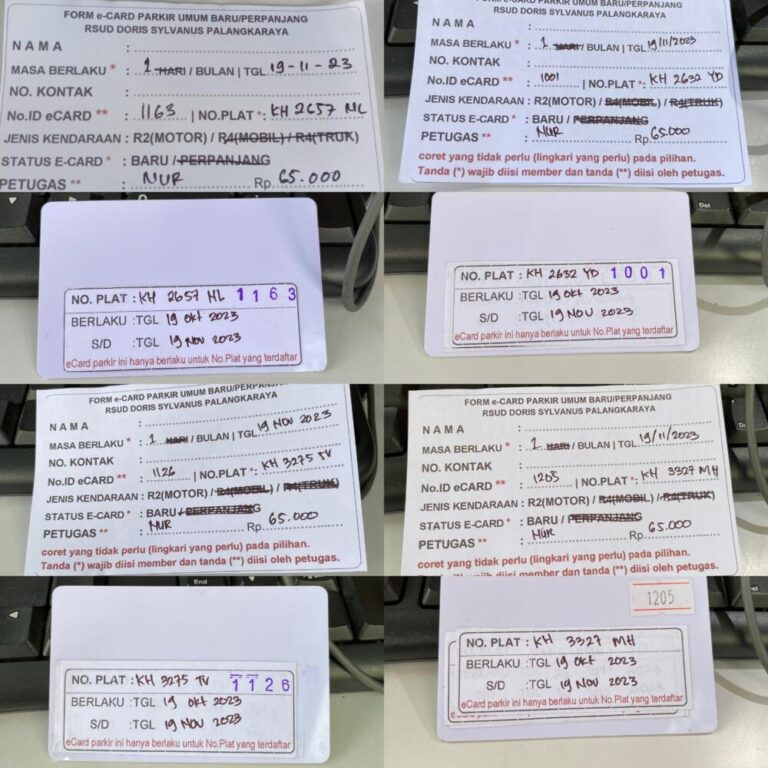 FORM e-CARD PARKIR UMUM BARU/PERPANJANG
RSUD DORIS SYLVANUS PALANGKARAYA
NAMA :
MASA BERLAKU * : 1 HARI / BULAN | TGL 19-11-23
NO. KONTAK :
No.ID eCARD ** : 1163 | NO.PLAT * : KH 2657 NL
JENIS KENDARAAN : R2(MOTOR) / R4(MOBIL) / R4(TRUK)
STATUS E-CARD * : BARU / PERPANJANG
PETUGAS ** : NUR Rp. 65.000
FORM e-CARD PARKIR UMUM BARU/PERPANJANG
RSUD DORIS SYLVANUS PALANGKARAYA
NAMA :
MASA BERLAKU * : 1 HARI / BULAN | TGL 19/11/2023
NO. KONTAK :
No.ID eCARD ** : 1001 | NO.PLAT * : KH 2632 YD
JENIS KENDARAAN : R2(MOTOR) / R4(MOBIL) / R4(TRUK)
STATUS E-CARD * : BARU / PERPANJANG
PETUGAS ** : NUR Rp. 65.000
coret yang tidak perlu (lingkari yang perlu) pada pilihan.
Tanda (*) wajib diisi member dan tanda (**) diisi oleh petugas.
NO. PLAT : KH 2657 NL 1163
BERLAKU : TGL 19 Okt 2023
S/D : TGL 19 Nov 2023
eCard parkir ini hanya berlaku untuk No.Plat yang terdaftar
Del
NO. PLAT : KH 2632 YD 1001
BERLAKU : TGL 19 Okt 2023
S/D : TGL 19 NOV 2023
eCard parkir ini hanya berlaku untuk No.Plat yang terdaftar
FORM e-CARD PARKIR UMUM BARU/PERPANJANG
RSUD DORIS SYLVANUS PALANGKARAYA
NAMA :
MASA BERLAKU * : 1 HARI / BULAN | TGL 19 NOV 2023
NO. KONTAK :
No.ID eCARD ** : 1126 | NO.PLAT * : KH 3275 TV
JENIS KENDARAAN : R2(MOTOR) / R4(MOBIL) / R4(TRUK)
STATUS E-CARD * : BARU / PERPANJANG
PETUGAS ** : NUR Rp. 65.000
coret yang tidak perlu (lingkari yang perlu) pada pilihan.
Tanda (*) wajib diisi member dan tanda (**) diisi oleh petugas.
FORM e-CARD PARKIR UMUM BARU/PERPANJANG
RSUD DORIS SYLVANUS PALANGKARAYA
NAMA :
MASA BERLAKU * : 1 HARI / BULAN | TGL 19/11/2023
NO. KONTAK :
No.ID eCARD ** : 1205 | NO.PLAT * : KH 3327 MH
JENIS KENDARAAN : R2(MOTOR) / R4(MOBIL) / R4(TRUK)
STATUS E-CARD * : BARU / PERPANJANG
PETUGAS ** : NUR Rp. 65.000
coret yang tidak perlu (lingkari yang perlu) pada pilihan.
Tanda (*) wajib diisi member dan tanda (**) diisi oleh petugas.
End
NO. PLAT : KH 3275 TV 1126
BERLAKU : TGL 19 Okt 2023
S/D : TGL 19 NOV 2023
eCard parkir ini hanya berlaku untuk No.Plat yang terdaftar
1205
NO. PLAT : KH 3327 MH
BERLAKU : TGL 19 Okt 2023
S/D : TGL 19 NOV 2023
eCard parkir ini hanya berlaku untuk No.Plat yang terdaftar